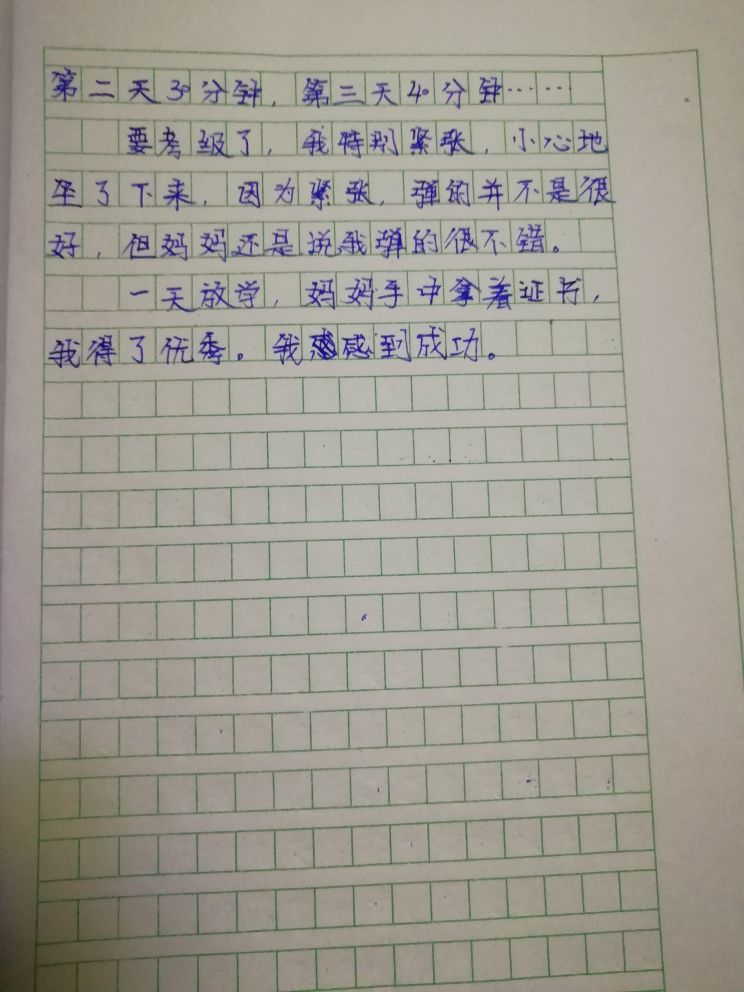 第二天30分钟，第三天40分钟……
要考级了，我特别紧张，小心地
坐了下来，因为紧张，弹的并不是很
好，但妈妈还是说我弹的很不错。
一天放学，妈妈手中拿着证书，
我得了优秀。我感到成功。